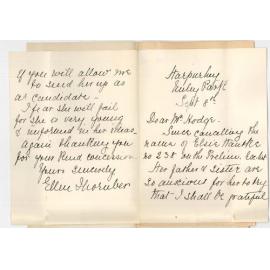 Harpurhey
Sept 8th
Dear Mr Hodge.
Since cancelling the
name of Elsie
no 238 on the Prelim.
Her father & sister are
so anxious for her to try
that I shall be grateful
if you will allow me
to send her up as
a candidate.
I fear she will fail
for she is very young
& unformed in her ideas
again thanking you
for your kind concern
Yours sincerely
Ellen Thornber